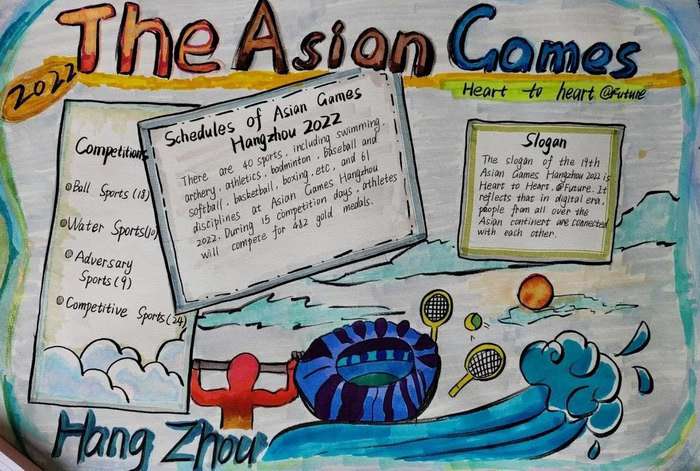 The Asian Games
2022
Heart to heart @Future
Competitions
Ball Sports (18)
Water Sports(10)
Adversary
Sports (9)
Competitive Sports(24)
Schedules of Asian Games
Hangzhou 2022
There are 40 sports, including swimming,
archery, athletics, badminton, baseball and
softball, basketball, boxing, etc, and 61
disciplines at Asian Games Hangzhou
2022. During 15 competition days, athletes
will compete for 482 gold medals.
Slogan
The slogan of the 19th
Asian Games Hangzhou 2022 is
Heart to Heart, @Future. It
reflects that in digital era,
people from all over the
Asian continent are connected
with each other.
Hang Zhou